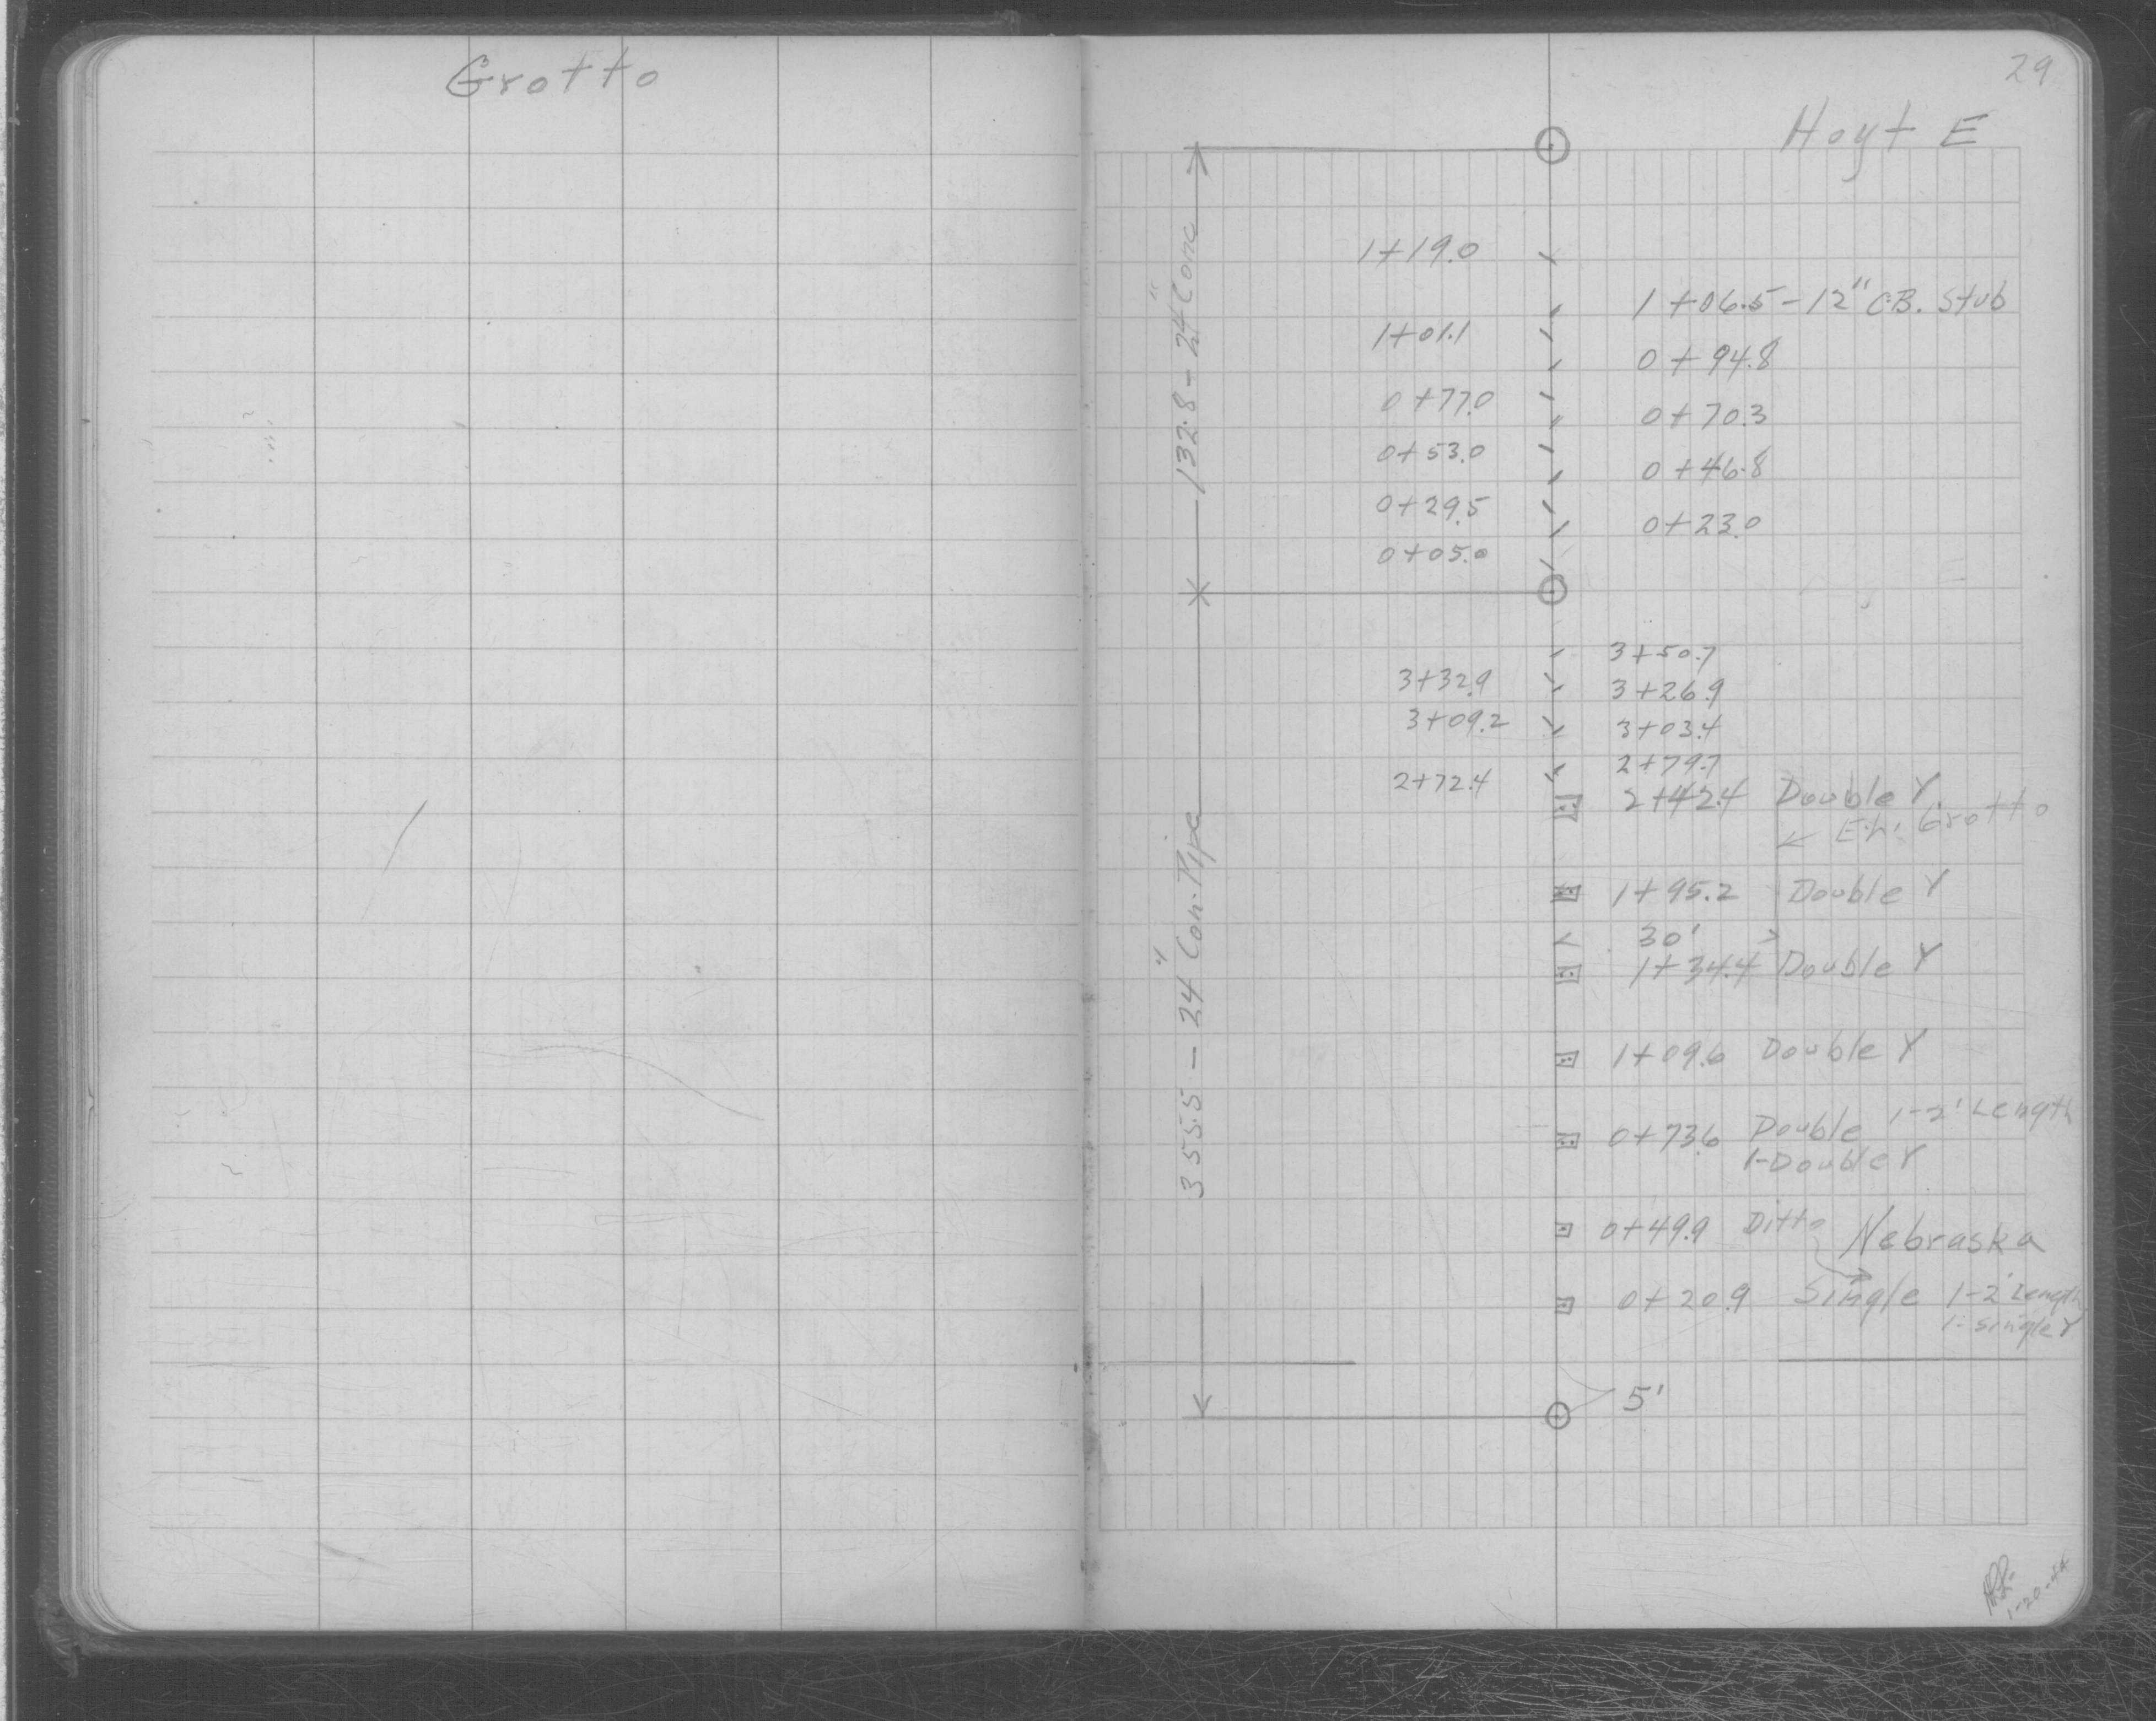 Grotto
29
Hoyt E
1+19.0
1+06.5-12" C.B. Stub
1+01.1
0+94.8
0+77.0
0+70.3
0+53.0
0+46.8
0+29.5
0+23.0
0+05.0
132.8 - 24" Conc
3+50.7
3+32.9
3+26.9
3+09.2
3+03.4
2+79.7
2+72.4
2+42.4 Double Y
Grotto
1+95.2 Double Y
30'
1+34.4 Double Y
1+09.6 Double Y
0+73.6 Double 1-2' Length
1-Double Y
0+49.9 Ditto Nebraska
0+20.9 Single 1-2' Length
1-single Y
355.5 - 24" Con. Pipe
5'